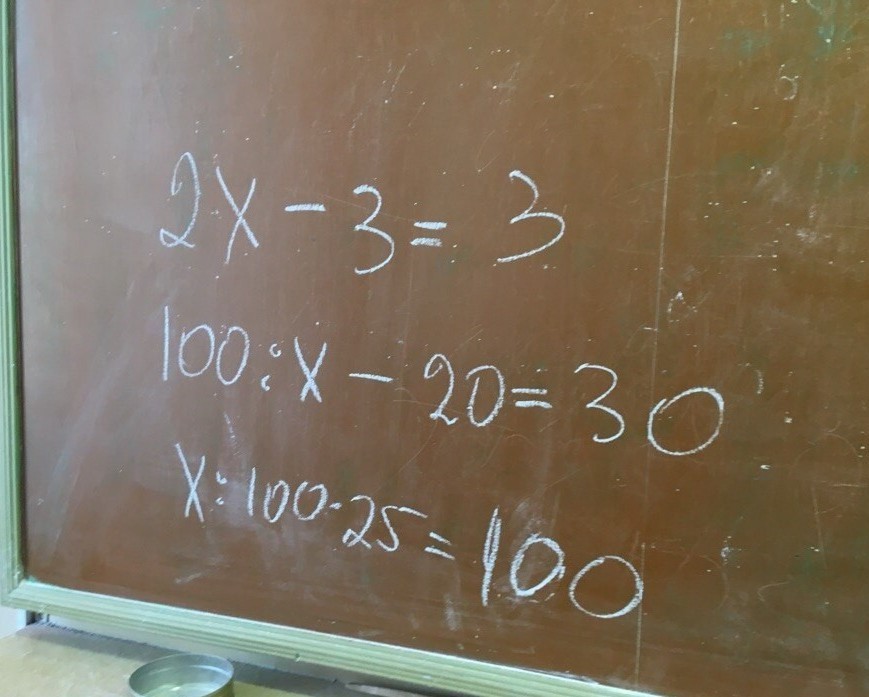 2x - 3 = 3
100 : x - 20 = 30
x : 100 · 25 = 100